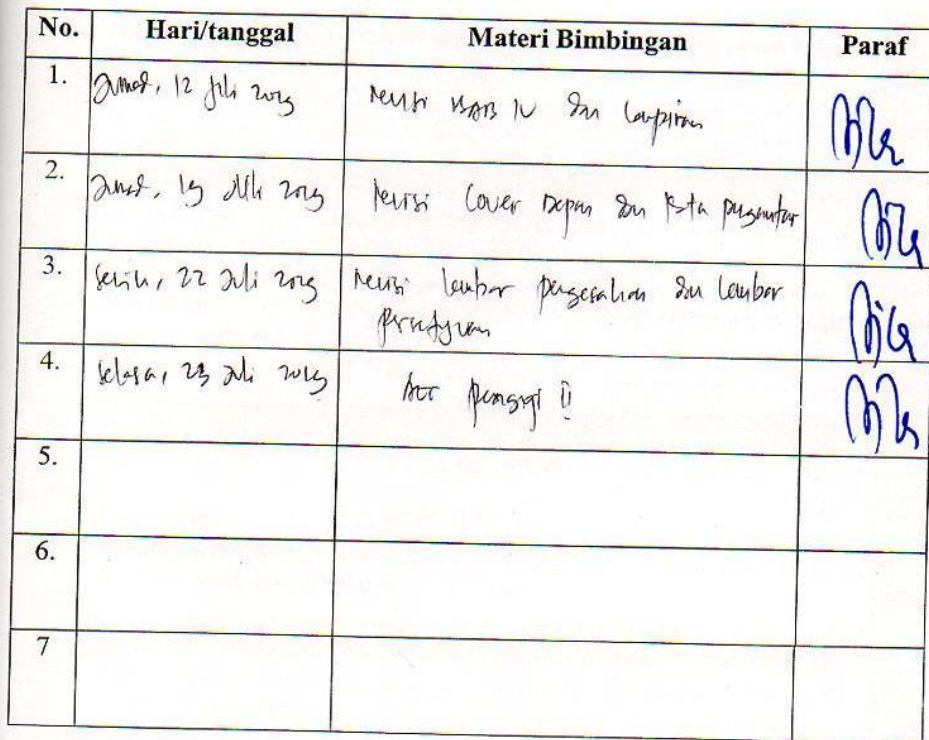 No. Hari/tanggal Materi Bimbingan Paraf
1. Jumat, 12 Juli 2019 Revisi BAB IV dan lampiran
2. Jumat, 19 Juli 2019 Revisi Cover Depan dan Kata pengantar
3. Senin, 22 Juli 2019 Revisi lembar pengesahan dan lembar
Persetujuan
4. Selasa, 23 Juli 2019 Acc
5.
6.
7